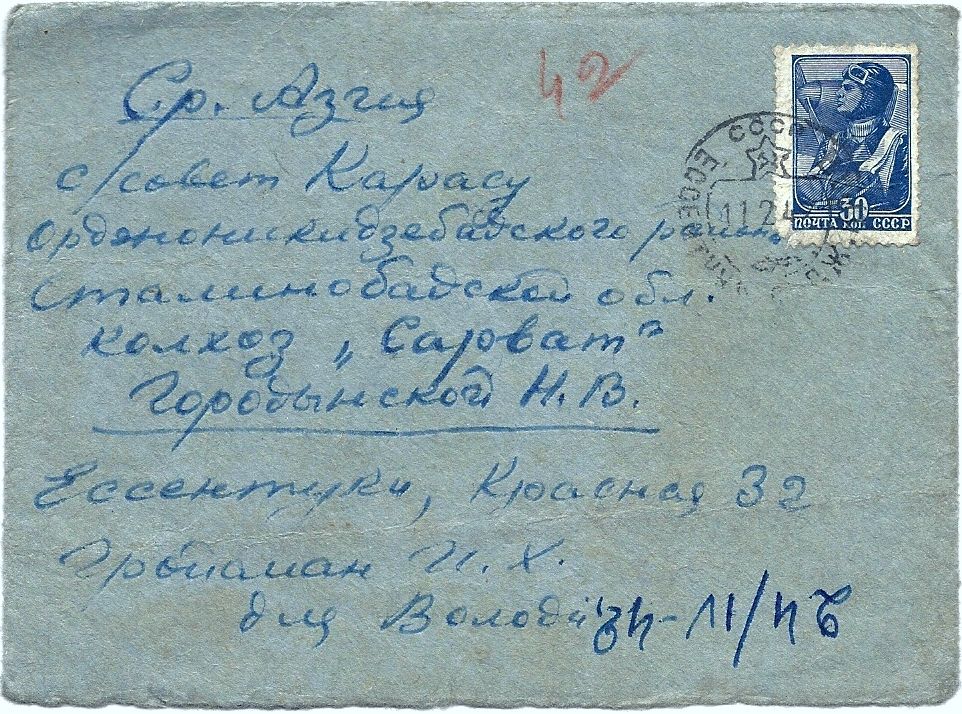 42
Ср. Азия
с/совет Карасу
Орджоникидзебадского район
Сталинобадской обл.
колхоз „Сарват"
Городынской Н. В.
Ессентуки, Красная 32
И. Х.
для Володи
24/IV-42
СССР
11.2.4
30
ПОЧТА КОП СССР